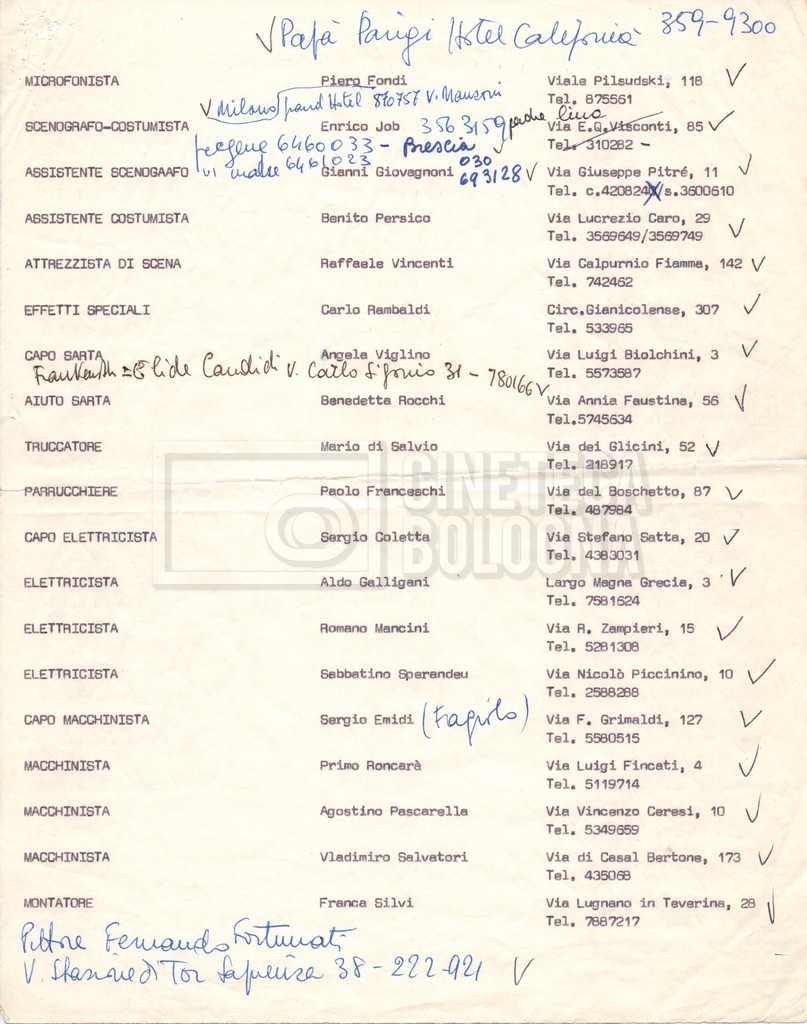 Papà Parigi Hotel California 359-9300
MICROFONISTA Piero Fondi Viale Pilsudski, 118
Tel. 875561
Milano Grand Hotel 870757 V. Manzoni
SCENOGRAFO-COSTUMISTA Enrico Job 3563159 Via E.Q.Visconti, 85
Tel. 310282 -
6460033 - Brescia
6461023 030
693128
ASSISTENTE SCENOGAAFO Gianni Giovagnoni Via Giuseppe Pitré, 11
Tel. c.420824 /s.3600610
ASSISTENTE COSTUMISTA Benito Persico Via Lucrezio Caro, 29
Tel. 3569649/3569749
ATTREZZISTA DI SCENA Raffaele Vincenti Via Calpurnio Fiamma, 142
Tel. 742462
EFFETTI SPECIALI Carlo Rambaldi Circ.Gianicolense, 307
Tel. 533965
CAPO SARTA Angela Viglino Via Luigi Biolchini, 3
Tel. 5573587
Elide Candidi V. Carlo Sigonio 31 - 780166
AIUTO SARTA Benedetta Rocchi Via Annia Faustina, 56
Tel.5745634
TRUCCATORE Mario di Salvio Via dei Glicini, 52
Tel. 218917
PARRUCCHIERE Paolo Franceschi Via del Boschetto, 87
Tel. 487984
CAPO ELETTRICISTA Sergio Coletta Via Stefano Satta, 20
Tel. 4383031
ELETTRICISTA Aldo Galligani Largo Magna Grecia, 3
Tel. 7581624
ELETTRICISTA Romano Mancini Via R. Zampieri, 15
Tel. 5281308
ELETTRICISTA Sabbatino Sperandeu Via Nicolò Piccinino, 10
Tel. 2588288
CAPO MACCHINISTA Sergio Emidi Via F. Grimaldi, 127
Tel. 5580515
MACCHINISTA Primo Roncarà Via Luigi Fincati, 4
Tel. 5119714
MACCHINISTA Agostino Pascarella Via Vincenzo Ceresi, 10
Tel. 5349659
MACCHINISTA Vladimiro Salvatori Via di Casal Bertone, 173
Tel. 435068
MONTATORE Franca Silvi Via Lugnano in Teverina, 28
Tel. 7887217
Pittore Fernando Fortunati
V. Stazione di Tor Sapienza 38 - 222-921
CINETECA
BOLOGNA